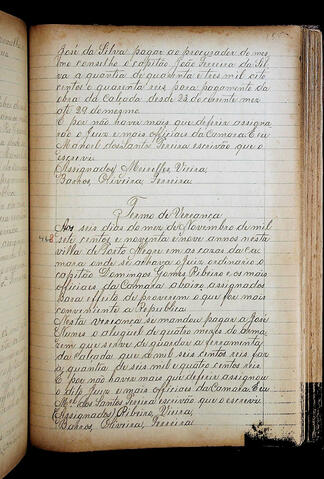 José da Silva pagar ao procurador do mes-
mo conselho o capitão João Ferreira da Sil-
va a quantia de quarenta e tres mil oito
centos e quarenta reis para pagamento da
obra da Calçada desde 23 do corrente mez
até 29 do mesmo.
E por não haver mais que deferir assigna
rão o Juiz e mais officiais da Camara. Eu
Manoel dos Santos Ferreira escrivão que o
escrevi.
(Assignados) Meirelles, Vieira,
Barros, Oliveira, Ferreira
Termo de Vereança
Aos seis dias do mez de Novembro de mil
sete centos e noventa e nove annos nesta
villa de Porto Alegre em as cazas da ca-
mara onde se achava o Juiz ordinario o
capitão Domingos Gomes Ribeiro e os mais
officiaes da Camara abaixo assignados
para effeito de proverem o que for mais
conveniente a Republica
Nesta vereança se mandou pagar a José
Nunes o aluguel de quatro mezes do arma-
zem que serve de guardar a ferramenta
da Calçada que a mil seis centos reis faz
a quantia de seis mil e quatro centos reis.
E por não haver mais que deferir assignou
o dito Juiz e mais officiaes da Camara. Eu
Mel dos Santos Ferreira escrivão que o escrevi
(Assignados) Ribeiro, Vieira,
Barros, Oliveira, Ferreira